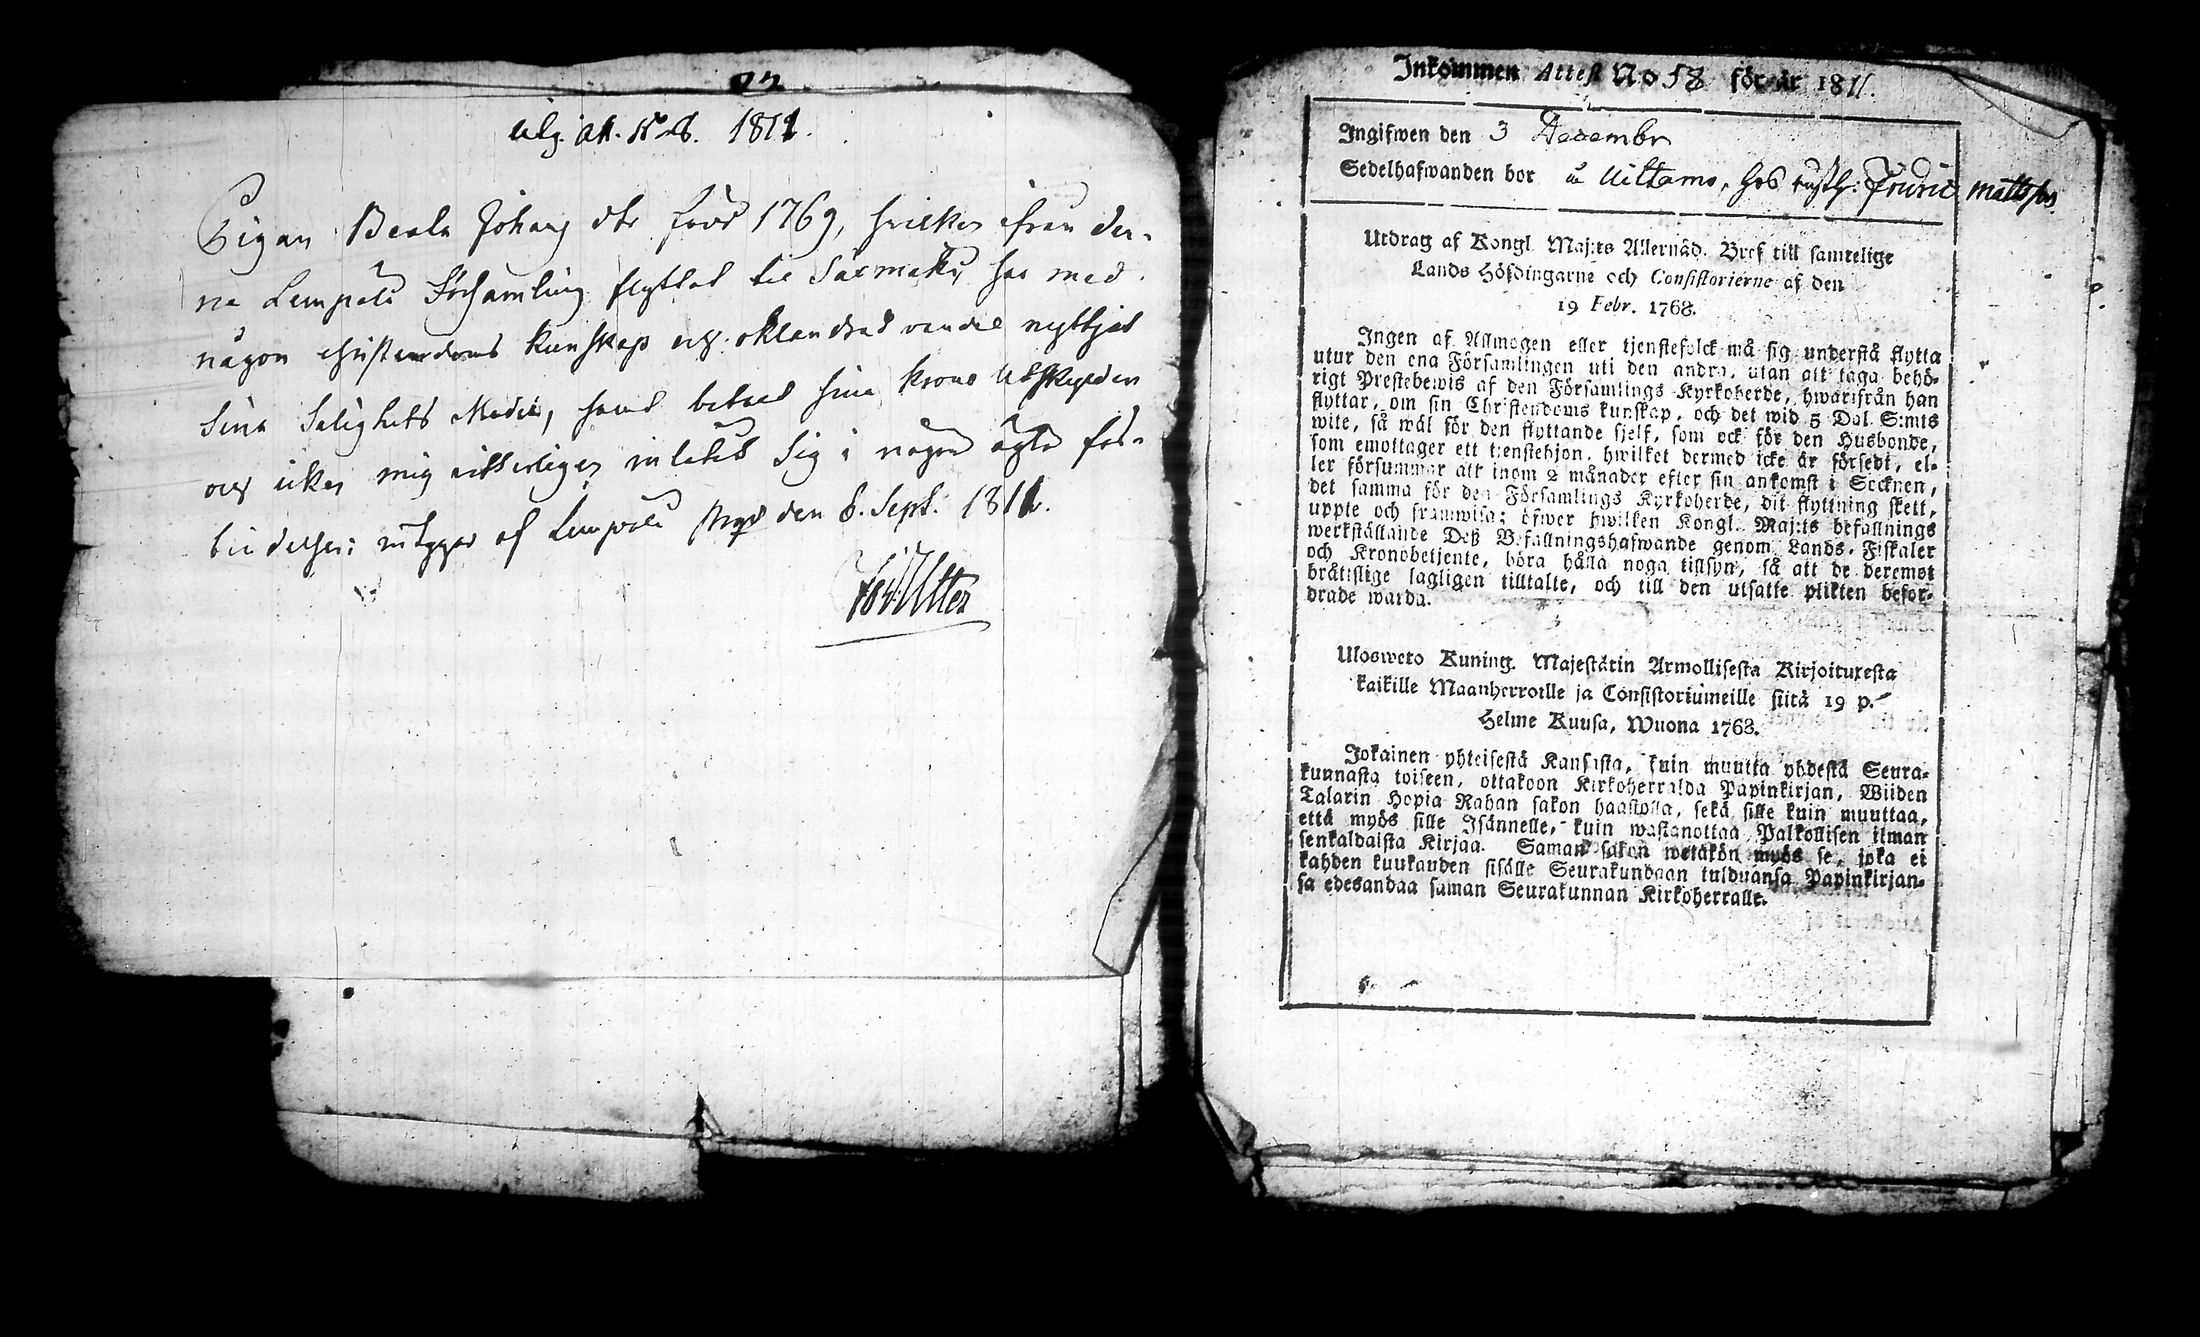 utg. att. N:o 8. 1811.
Pigan Beata Johans dtr född 1769, hvilken ifrån den-
na Lempälä Församling flyttat till Säexmäki, har med
någon christendoms kunskap och oklandrad vandel nyttjat
Sina Salighets Medel, samt betalt sina krono Utskylder
och icke mig vitterligen inlåtit Sig i någon ägta för-
bindelse; intygar af Lempälä Prgd den 8. Sept. 1811.
Inkommen Attest No 58 för år 1811.
Ingifwen den 3 Decembr
Sedelhafwanden bor å Uittamo, hos rusth: Fridric Mattsson.
Utdrag af Kongl. Maj:ts Allernåd. Bref till samtelige
Lands Höfdingarne och Consistorierne af den
19 Febr. 1768.
Ingen af Allmogen eller tjenstefolck må sig understå flytta
utur den ena Församlingen uti den andra, utan att taga behö-
rigt Prestebewis af den Församlings Kyrkoherde, hwarifrån han
flyttar, om sin Christendoms kunskap, och det wid 5 Dal. S:mts
wite, så wäl för den flyttande sjelf, som ock för den Husbonde,
som emottager ett tjenstehjon, hwilket dermed icke är försedt, el-
ler försummar att inom 2 månader efter sin ankomst i Socknen,
det samma för den Församlings Kyrkoherde, dit flyttning skett,
uppte och framwisa; öfwer hwilken Kongl. Maj:ts befallnings
werkställande Deß Befallningshafwande genom Lands-Fiskaler
och Kronobetjente, böra hålla noga tillsyn, så att de deremot
bråtislige lagligen tilltalte, och till den utsatte plikten befor-
drade warda.
Ulosweto Kuning. Majestätin Armollisesta Kirjoituxesta
kaikille Maanherroille ja Consistoriumeille siitä 19 p.
Helme Kuusa, Wuona 1768.
Jokainen yhteisestä Kansasta, kuin muutta yhdestä Seura-
kunnasta toiseen, ottakoon Kirkoherralda Papinkirjan, Wiiden
Talarin Hopia Rahan sakon haastolla, sekä sille kuin muuttaa,
että myös sille Isännelle, kuin wastanottaa Palkollisen ilman
senkaldaista Kirjaa. Saman sakon wetäkön myös se, joka ei
kahden kuukauden sisälle Seurakundaan tulduansa Papinkirjan-
sa edesandaa saman Seurakunnan Kirkoherralle.